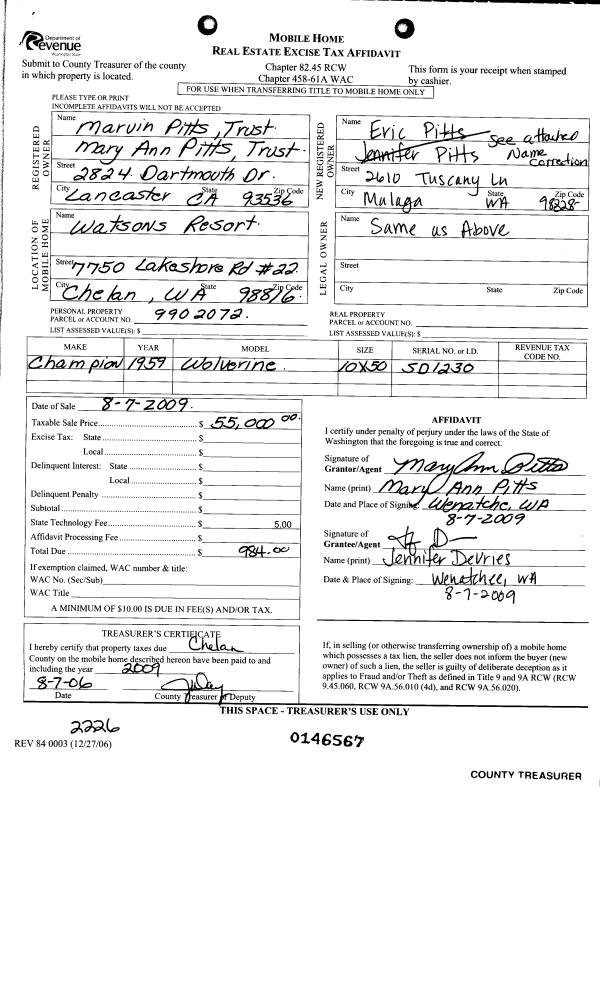 Department of
Revenue
Washington State
MOBILE HOME
REAL ESTATE EXCISE TAX AFFIDAVIT
Submit to County Treasurer of the county
in which property is located.
Chapter 82.45 RCW
Chapter 458-61A WAC
This form is your receipt when stamped
by cashier.
FOR USE WHEN TRANSFERRING TITLE TO MOBILE HOME ONLY
PLEASE TYPE OR PRINT
INCOMPLETE AFFIDAVITS WILL NOT BE ACCEPTED
REGISTERED OWNER
Name Marvin Pitts, Trust
Mary Ann Pitts, Trust.
Street 2824 Dartmouth Dr.
City State Zip Code
Lancaster CA 93536
NEW REGISTERED OWNER
Name Eric Pitts see attached
Jennifer Pitts Name correction
Street 2610 Tuscany Ln
City State Zip Code
Malaga WA 98828
LOCATION OF MOBILE HOME
Name Watsons Resort.
Street 7750 Lakeshore Rd #22
City State Zip Code
Chelan, WA 98816
LEGAL OWNER
Name Same as Above
Street
City State Zip Code
PERSONAL PROPERTY
PARCEL or ACCOUNT NO. 9902072.
LIST ASSESSED VALUE(S): $
REAL PROPERTY
PARCEL or ACCOUNT NO.
LIST ASSESSED VALUE(S): $
MAKE YEAR MODEL SIZE SERIAL NO. or I.D. REVENUE TAX CODE NO.
Champion 1959 Wolverine. 10X50 SD1230
Date of Sale 8-7-2009.
Taxable Sale Price $ 55,000 00.
Excise Tax: State $
Local $
Delinquent Interest: State $
Local $
Delinquent Penalty $
Subtotal $
State Technology Fee $ 5.00
Affidavit Processing Fee $
Total Due $ 984.00
If exemption claimed, WAC number & title:
WAC No. (Sec/Sub)
WAC Title
A MINIMUM OF $10.00 IS DUE IN FEE(S) AND/OR TAX.
AFFIDAVIT
I certify under penalty of perjury under the laws of the State of
Washington that the foregoing is true and correct.
Signature of
Grantor/Agent Mary Ann Pitts
Name (print) Mary Ann Pitts
Date and Place of Signing: Wenatche, WA
8-7-2009
Signature of
Grantee/Agent
Name (print) Jennifer DeVries
Date & Place of Signing: Wenatchee, WA
8-7-2009
TREASURER'S CERTIFICATE
I hereby certify that property taxes due Chelan
County on the mobile home described hereon have been paid to and
including the year 2009
8-7-06
Date County Treasurer or Deputy
If, in selling (or otherwise transferring ownership of) a mobile home
which possesses a tax lien, the seller does not inform the buyer (new
owner) of such a lien, the seller is guilty of deliberate deception as it
applies to Fraud and/or Theft as defined in Title 9 and 9A RCW (RCW
9.45.060, RCW 9A.56.010 (4d), and RCW 9A.56.020).
THIS SPACE - TREASURER'S USE ONLY
2226
REV 84 0003 (12/27/06)
0146567
COUNTY TREASURER